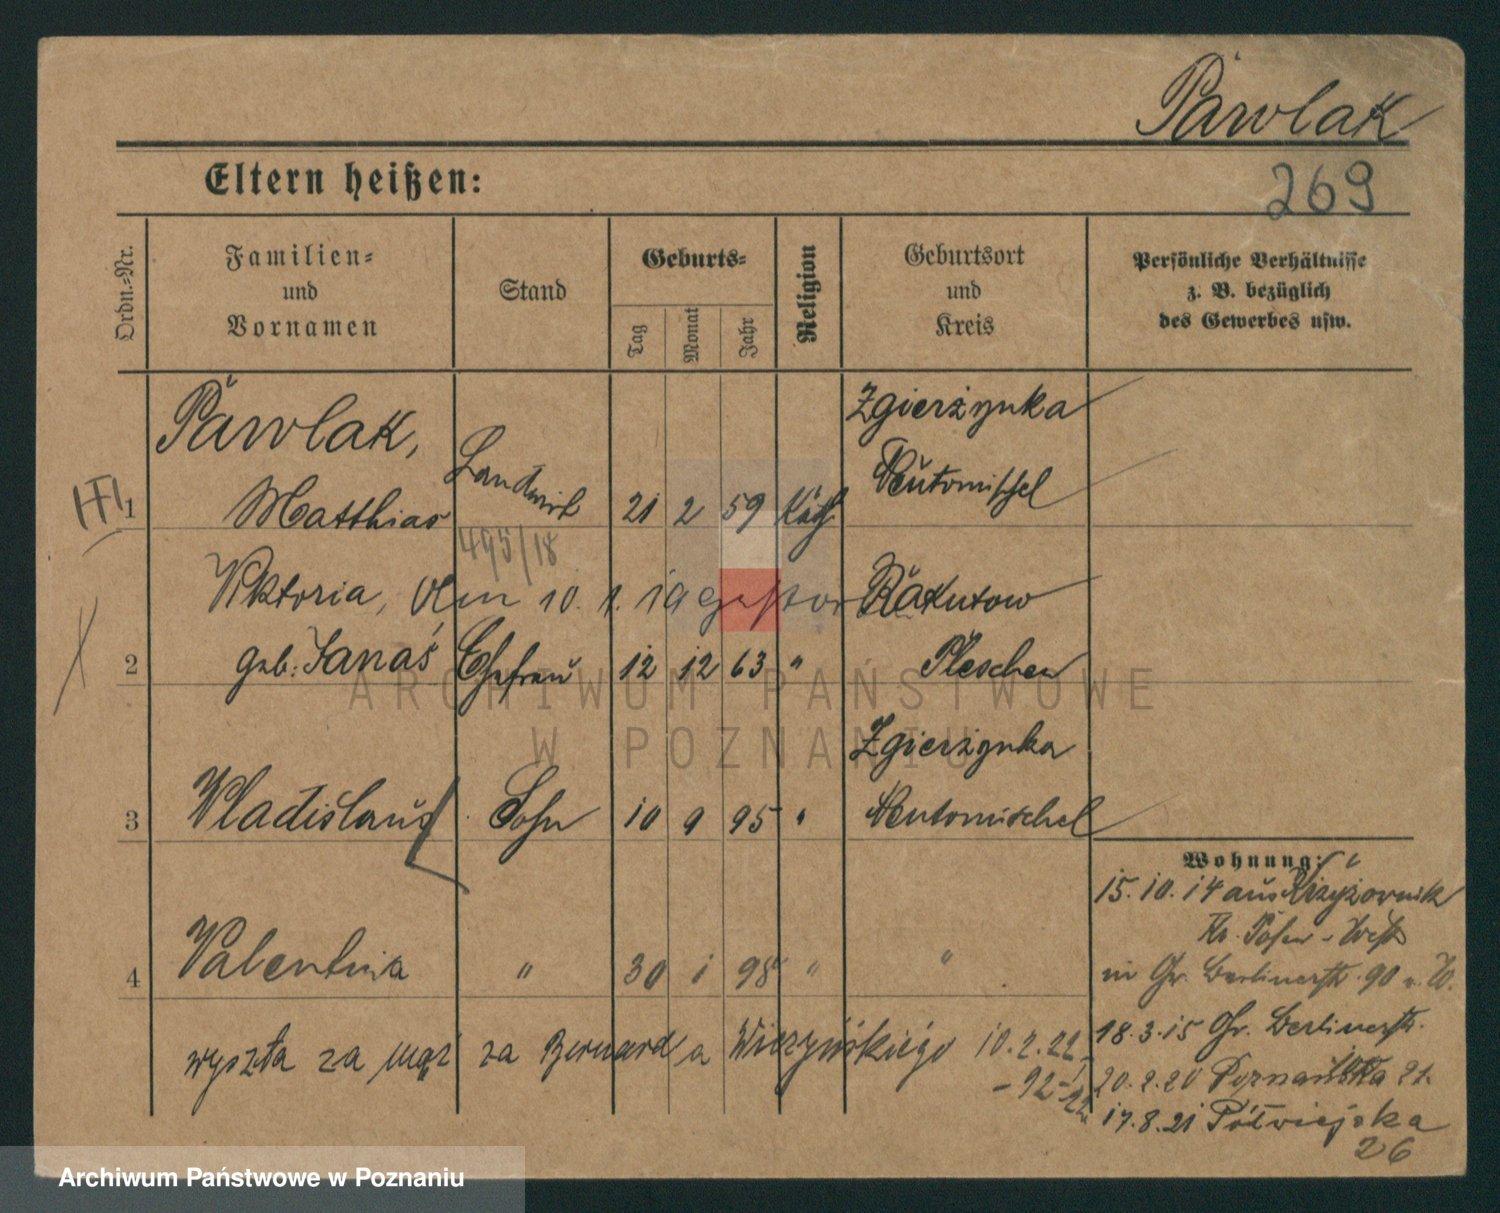 Pawlak
269
Eltern heißen:
Ordn.-Nr.
Familien- und Vornamen
Stand
Geburts-
Tag
Monat
Jahr
Religion
Geburtsort und Kreis
Persönliche Verhältnisse
z. B. bezüglich
des Gewerbes usw.
Pawlak,
Zgierzynka
1 Matthias Landwirt 21 2 59 Kath Neutomischel
495/18
Viktoria, 10. 1. 19 gestor Rakutow
2 geb. Janaś Ehefrau 12 12 63 " Pleschen
Zgierzynka
3 Vladislaus Sohn 10 9 95 " Neutomischel
Wohnung:
15. 10. 14 aus Krzyżownik
Kr. Posen-West
4 Valentina " 30 1 98 " "
in Gr. Berlinerstr. 90
18. 3. 15 Gr. Berlinerstr.
wyszła za mąż za Bernarda Wierzyńskiego 10. 2. 22
20. 2. 20 Poznańska 21.
17. 8. 21 Półwiejska
26
ARCHIWUM PAŃSTWOWE
W POZNANIU
Archiwum Państwowe w Poznaniu